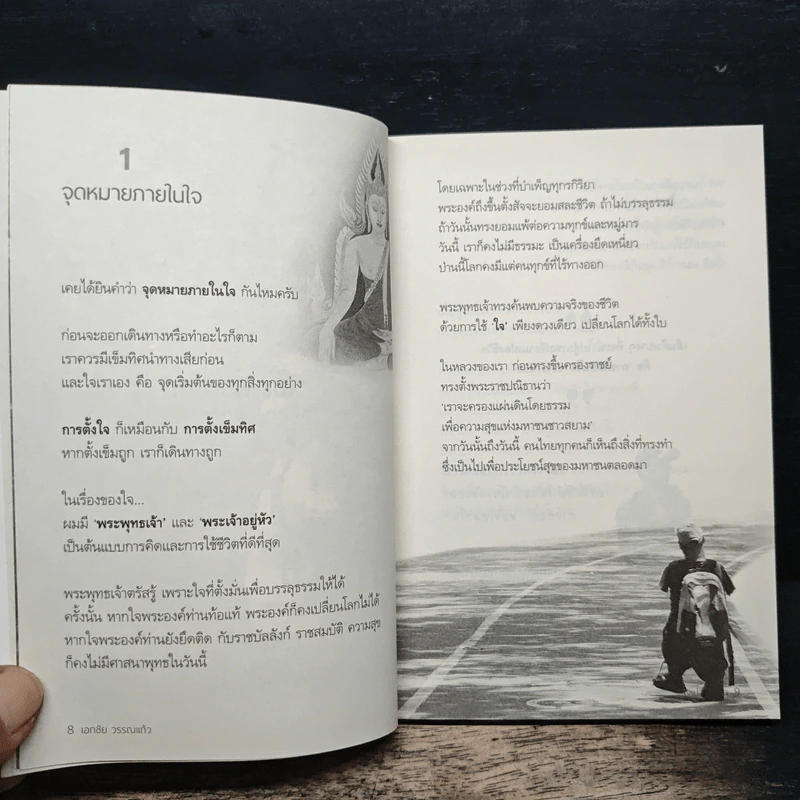 1
จุดหมายภายในใจ
เคยได้ยินคำว่า จุดหมายภายในใจ กันไหมครับ
ก่อนจะออกเดินทางหรือทำอะไรก็ตาม
เราควรมีเข็มทิศนำทางเสียก่อน
และใจเราเอง คือ จุดเริ่มต้นของทุกสิ่งทุกอย่าง
การตั้งใจ ก็เหมือนกับ การตั้งเข็มทิศ
หากตั้งเข็มถูก เราก็เดินทางถูก
ในเรื่องของใจ...
ผมมี 'พระพุทธเจ้า' และ 'พระเจ้าอยู่หัว'
เป็นต้นแบบการคิดและการใช้ชีวิตที่ดีที่สุด
พระพุทธเจ้าตรัสรู้ เพราะใจที่ตั้งมั่นเพื่อบรรลุธรรมให้ได้
ครั้งนั้น หากใจพระองค์ท่านท้อแท้ พระองค์ก็คงเปลี่ยนโลกไม่ได้
หากใจพระองค์ท่านยังยึดติด กับราชบัลลังก์ ราชสมบัติ ความสุข
ก็คงไม่มีศาสนาพุทธในวันนี้
8 เอกชัย วรรณแก้ว
โดยเฉพาะในช่วงที่บำเพ็ญทุกรกิริยา
พระองค์ถึงขั้นตั้งสัจจะยอมสละชีวิต ถ้าไม่บรรลุธรรม
ถ้าวันนั้นทรงยอมแพ้ต่อความทุกข์และหมู่มาร
วันนี้ เราก็คงไม่มีธรรมะ เป็นเครื่องยึดเหนี่ยว
ป่านนี้โลกคงมีแต่คนทุกข์ที่ไร้ทางออก
พระพุทธเจ้าทรงค้นพบความจริงของชีวิต
ด้วยการใช้ 'ใจ' เพียงดวงเดียว เปลี่ยนโลกได้ทั้งใบ
ในหลวงของเรา ก่อนทรงขึ้นครองราชย์
ทรงตั้งพระราชปณิธานว่า
'เราจะครองแผ่นดินโดยธรรม
เพื่อความสุขแห่งมหาชนชาวสยาม'
จากวันนั้นถึงวันนี้ คนไทยทุกคนก็เห็นถึงสิ่งที่ทรงทำ
ซึ่งเป็นไปเพื่อประโยชน์สุขของมหาชนตลอดมา